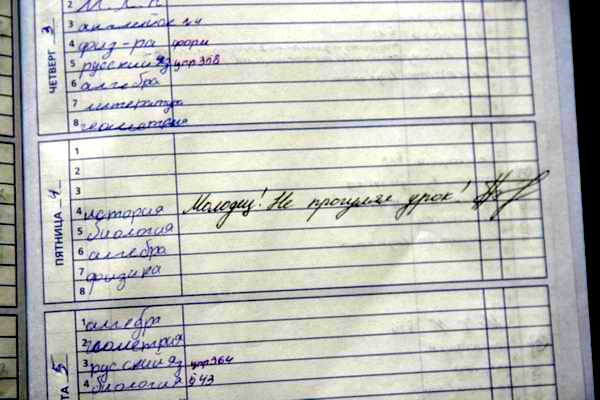 2 М.Х.К
3 английский
4 физ-ра форм
5 русский яз упр 308
6 алгебра
7 литература
8 геометрия
ЧЕТВЕРГ 3
1
2
3
4 история Молодец! Не прогулял урок!
5 биология
6 алгебра
7 физика
8
ПЯТНИЦА 4
1 алгебра
2 геометрия
3 русский яз упр 364
4 биология § 43
ТА 5